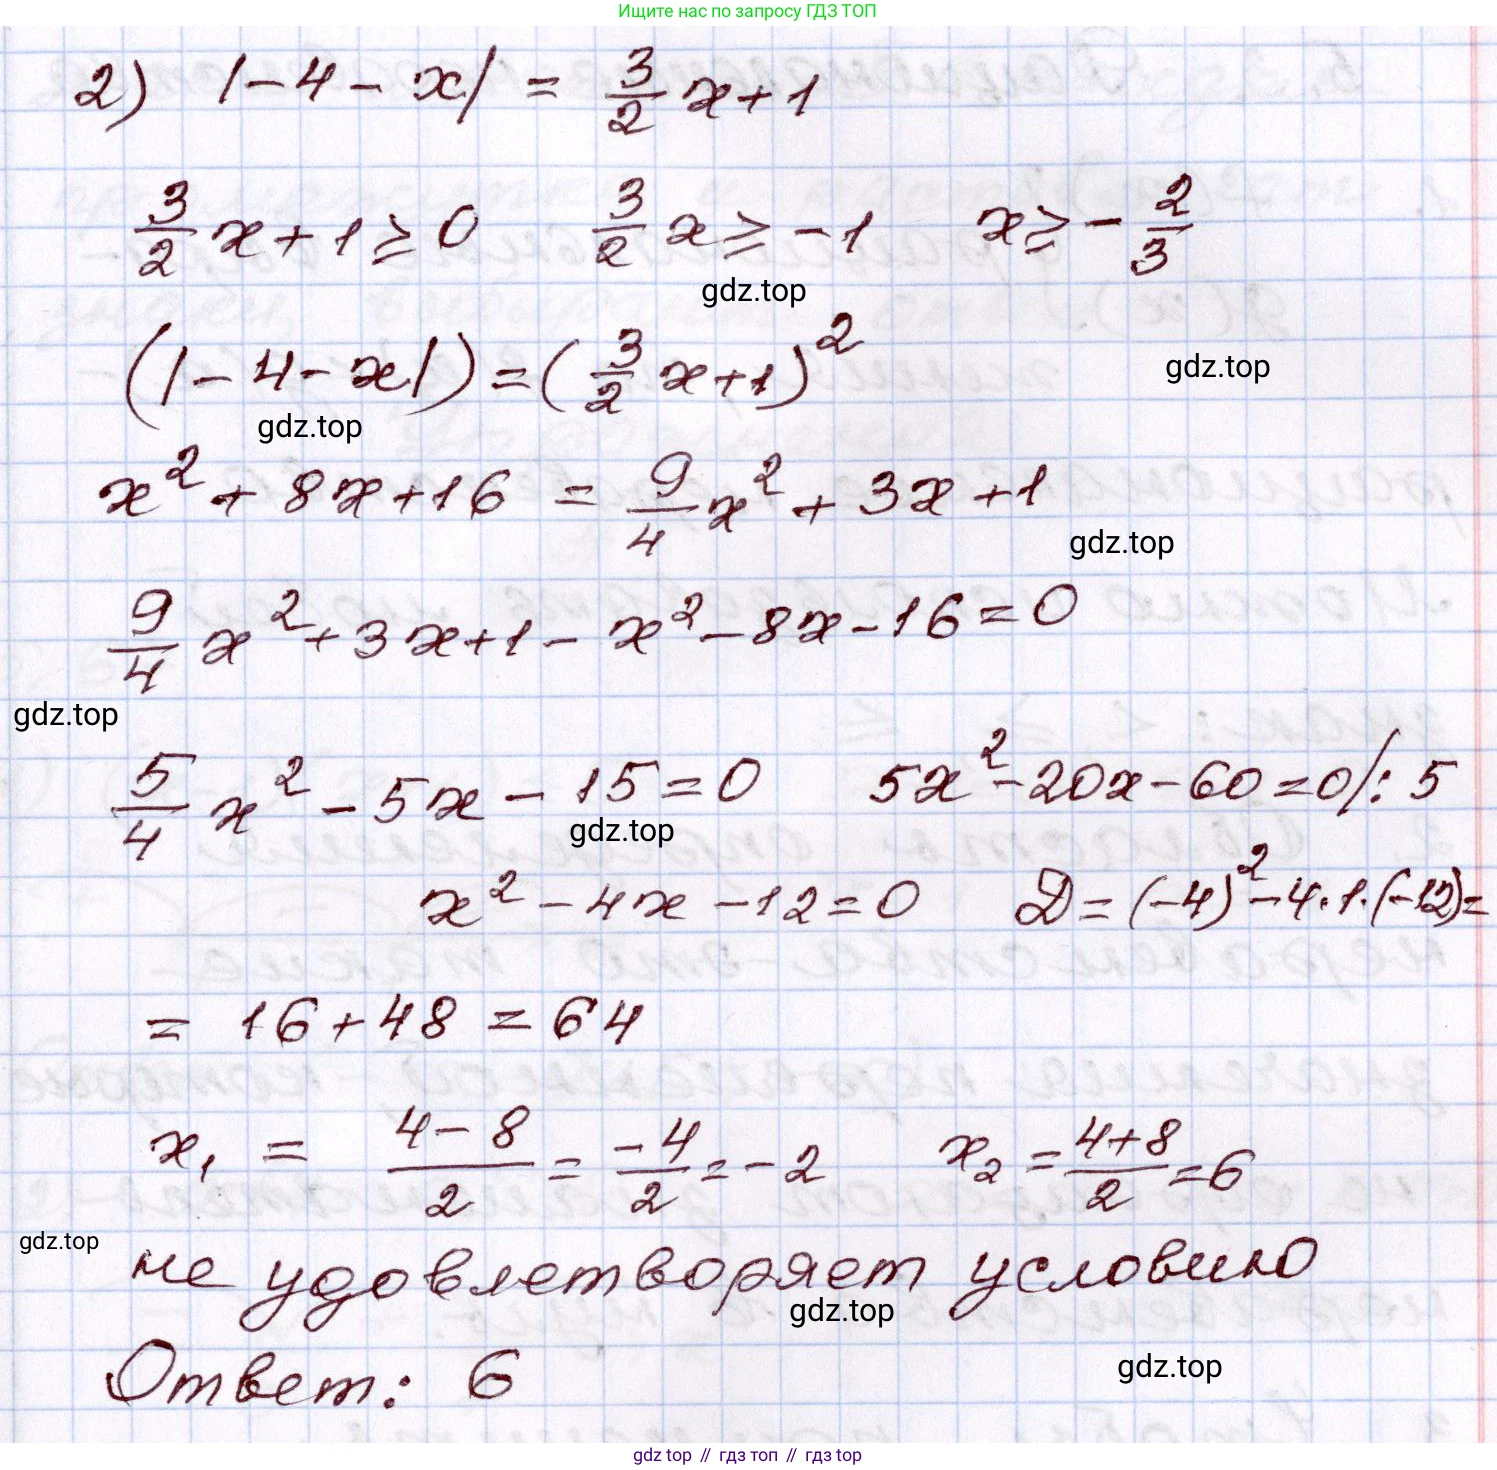 Ищите нас по запросу ГДЗ ТОП
2) |-4-x| = 3/2 x+1
3/2 x+1≥0 3/2 x≥-1 x≥-2/3
gdz.top
(|-4-x|)=(3/2 x+1)²
gdz.top
gdz.top
x²+8x+16 = 9/4 x²+3x+1
gdz.top
9/4 x²+3x+1-x²-8x-16=0
gdz.top
5/4 x²-5x-15=0 5x²-20x-60=0/:5
gdz.top
x²-4x-12=0 D=(-4)²-4·1·(-12)=
= 16+48=64
x₁ = 4-8/2 = -4/2 = -2 x₂ = 4+8/2 = 6
gdz.top
не удовлетворяет условию
gdz.top
Ответ: 6
gdz.top
gdz top // гдз топ // гдз top